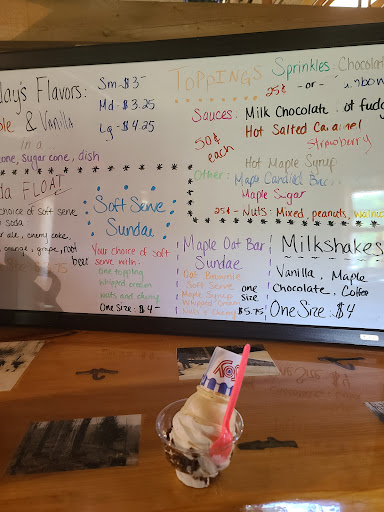 day's Flavors:
& Vanilla
in a
cone, sugar cone, dish
Sm-$3-
Md-$3.25
Lg-$4.25
TOPPINGS
Sprinkles: Chocolate
25¢ -or-
Sauces: Milk Chocolate, Hot fudge
50¢ each
Hot Salted Caramel
Strawberry
Hot Maple Syrup
Other:
Maple Sugar
25¢-Nuts: Mixed, peanuts, walnuts
FLOAT
choice of soft serve
soda
orange, grape, root
beer
Soft Serve
Sundae
Your choice of soft
serve with:
one topping
whipped cream
nuts and cherry
One Size: $4-
Maple Oat Bar
Sundae
Oat Brownie
Soft Serve
Maple Syrup
Whipped Cream
Nuts & Cherry
one
size
$5.75
Milkshakes
Vanilla, Maple
Chocolate, Coffee
One Size: $4